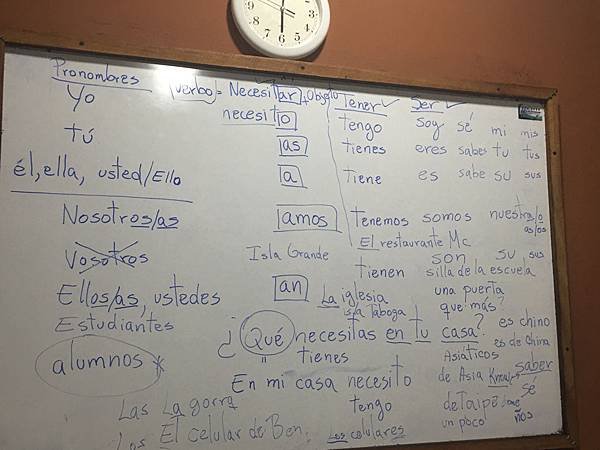 Pronombres (verbo) = Necesitar + Objeto Tener Ser
Yo necesito tengo soy sé mi mis
tú as tienes eres sabes tu tus
él, ella, usted/Ello a tiene es sabe su sus
Nosotros/as amos tenemos somos nuestra/o as/os
El restaurante Mc
Vosotros Isla Grande son su sus
tienen silla de la escuela
Ellos/as, ustedes an La iglesia una puerta
Isla Taboga que más?
Estudiantes ¿Qué necesitas en tu casa? es chino
= tienes es de China
alumnos Asiáticos saber
En mi casa necesito de Asia Know sé
Las La gorra tengo de Taipe años
Los El celular de Ben. Los celulares un poco